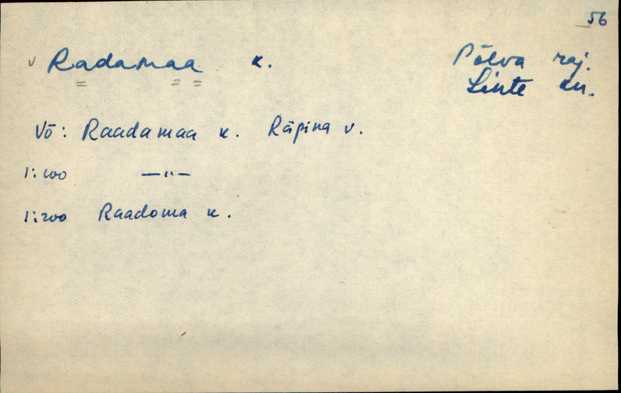 56
v Radamaa k. Põlva raj.
Linte kn.
Võ: Raadamaa k. Räpina v.
1:100 —"—
1:200 Raadoma k.